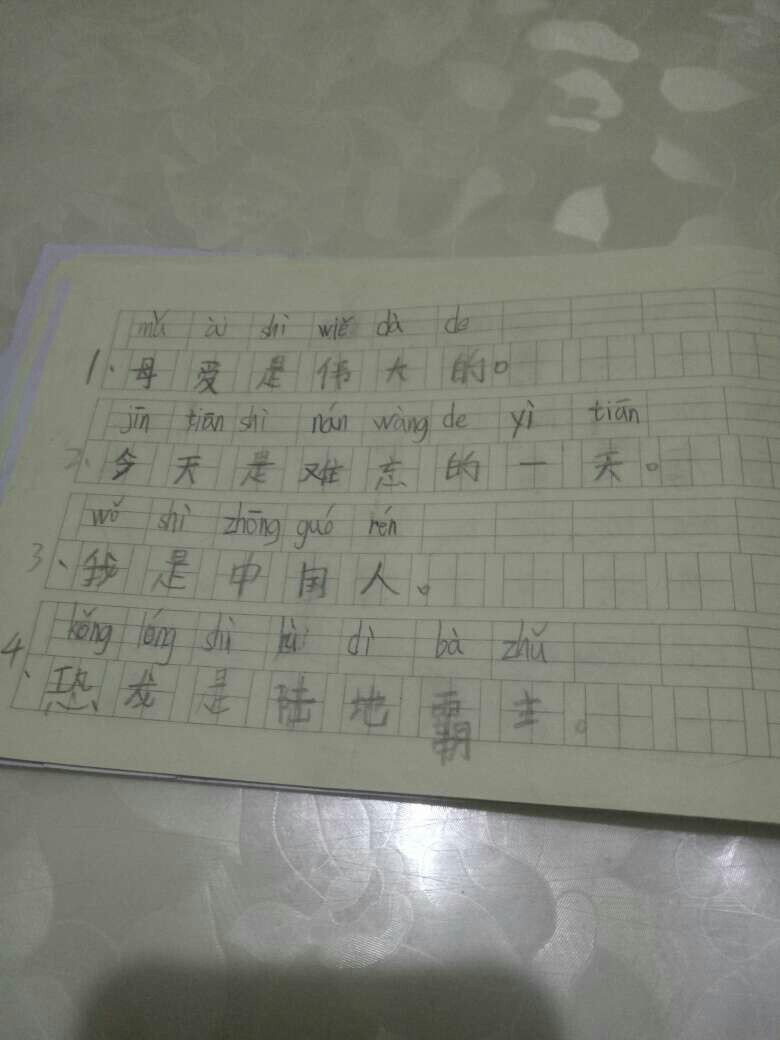 mǔ ài shì wiě dà de
1、母爱是伟大的。
jīn tiān shì nán wàng de yì tiān
2、今天是难忘的一天。
wǒ shì zhōng guó rén
3、我是中国人。
kǒng lóng shì lù dì bà zhǔ
4、恐龙是陆地霸主。